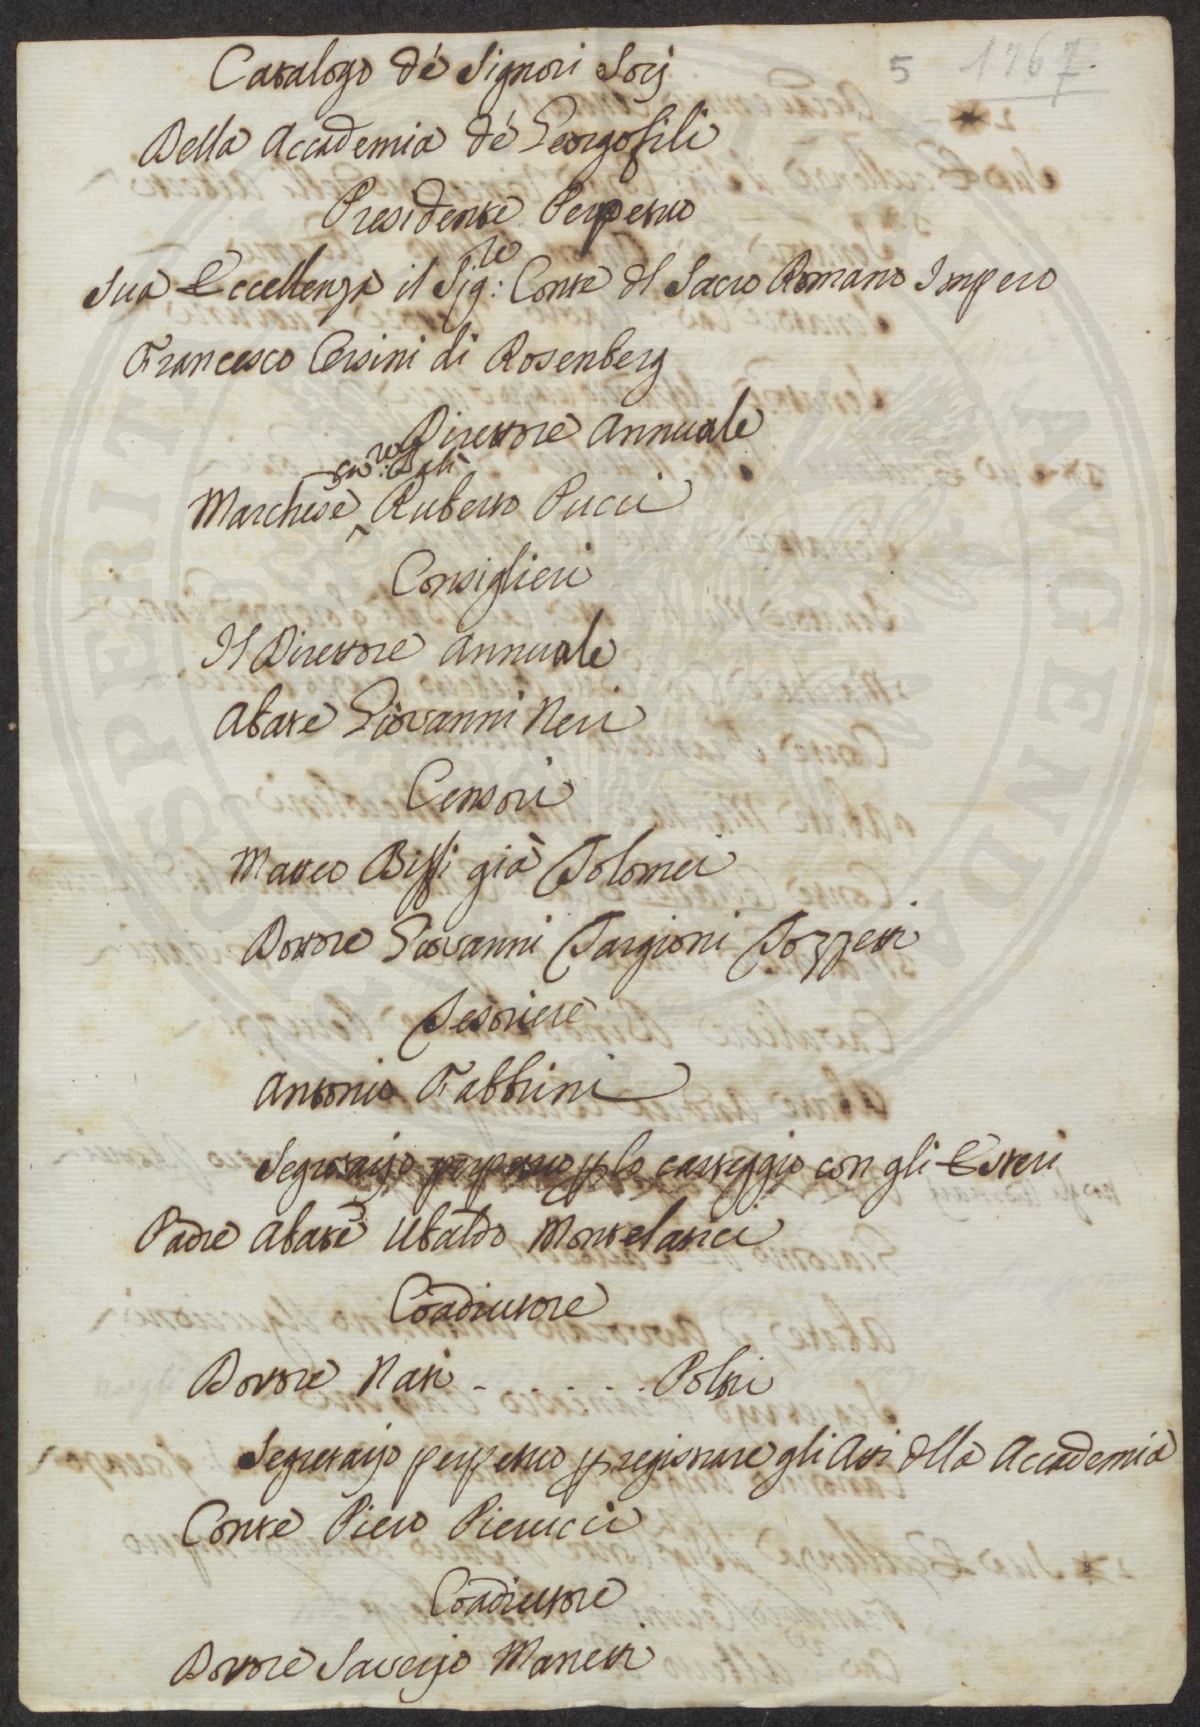 5 1767.
Catalogo dè Signori Socj
Della Accademia dè Georgofili
Presidente Perpetuo
Sua Eccellenza il Sig:re Conte dl Sacro Romano Impero
Francesco Orsini di Rosenberg
Direttore Annuale
Marchese Balì Ruberto Pucci
Consiglieri
Il Direttore Annuale
Abate Giovanni Neri
Censori
Matteo Biffi già Tolomei
Dottore Giovanni Targioni Tozzetti
Tesoriere
Antonio Fabbrini
Segretario perpetuo p lo carteggio con gli Esteri
Padre Abate Ubaldo Montelatici
Coadiutore
Dottore Nati - . . . . . Poltri
Segretario perpetuo p registrare gli Atti dlla Accademia
Conte Piero Pierucci
Coadiutore
Dottore Saverjo Manetti
SPERITAS AUGENDA